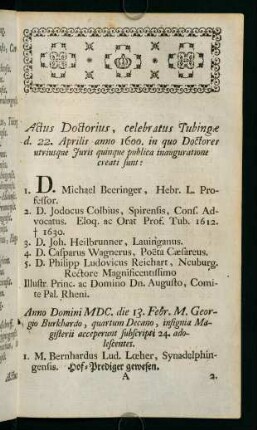 Actus Doctorius, celebratus Tubingæ
d. 22. Aprilis anno 1600. in quo Doctores
utriusque Juris quinque publica inauguratione
creati sunt:
1. D. Michael Beeringer, Hebr. L. Pro-
fessor.
2. D. Jodocus Colbius, Spirensis, Cons. Ad-
vocatus. Eloq. ac Orat Prof. Tub. 1612.
† 1630.
3. D. Joh. Heilbrunner, Lauinganus.
4. D. Casparus Wagnerus, Poëta Cæsareus.
5. D. Philipp Ludovicus Reichart, Neuburg.
Rectore Magnificentissimo
Illustr. Princ. ac Domino Dn. Augusto, Comi-
te Pal. Rheni.
Anno Domini MDC. die 13. Febr. M. Geor-
gio Burkhardo, quartum Decano, insignia Ma-
gisterii acceperunt subscripti 24. ado-
lescentes.
1. M. Bernhardus Lud. Lœher, Synadelphin-
gensis. Hof-Prediger gewesen.
A 2.